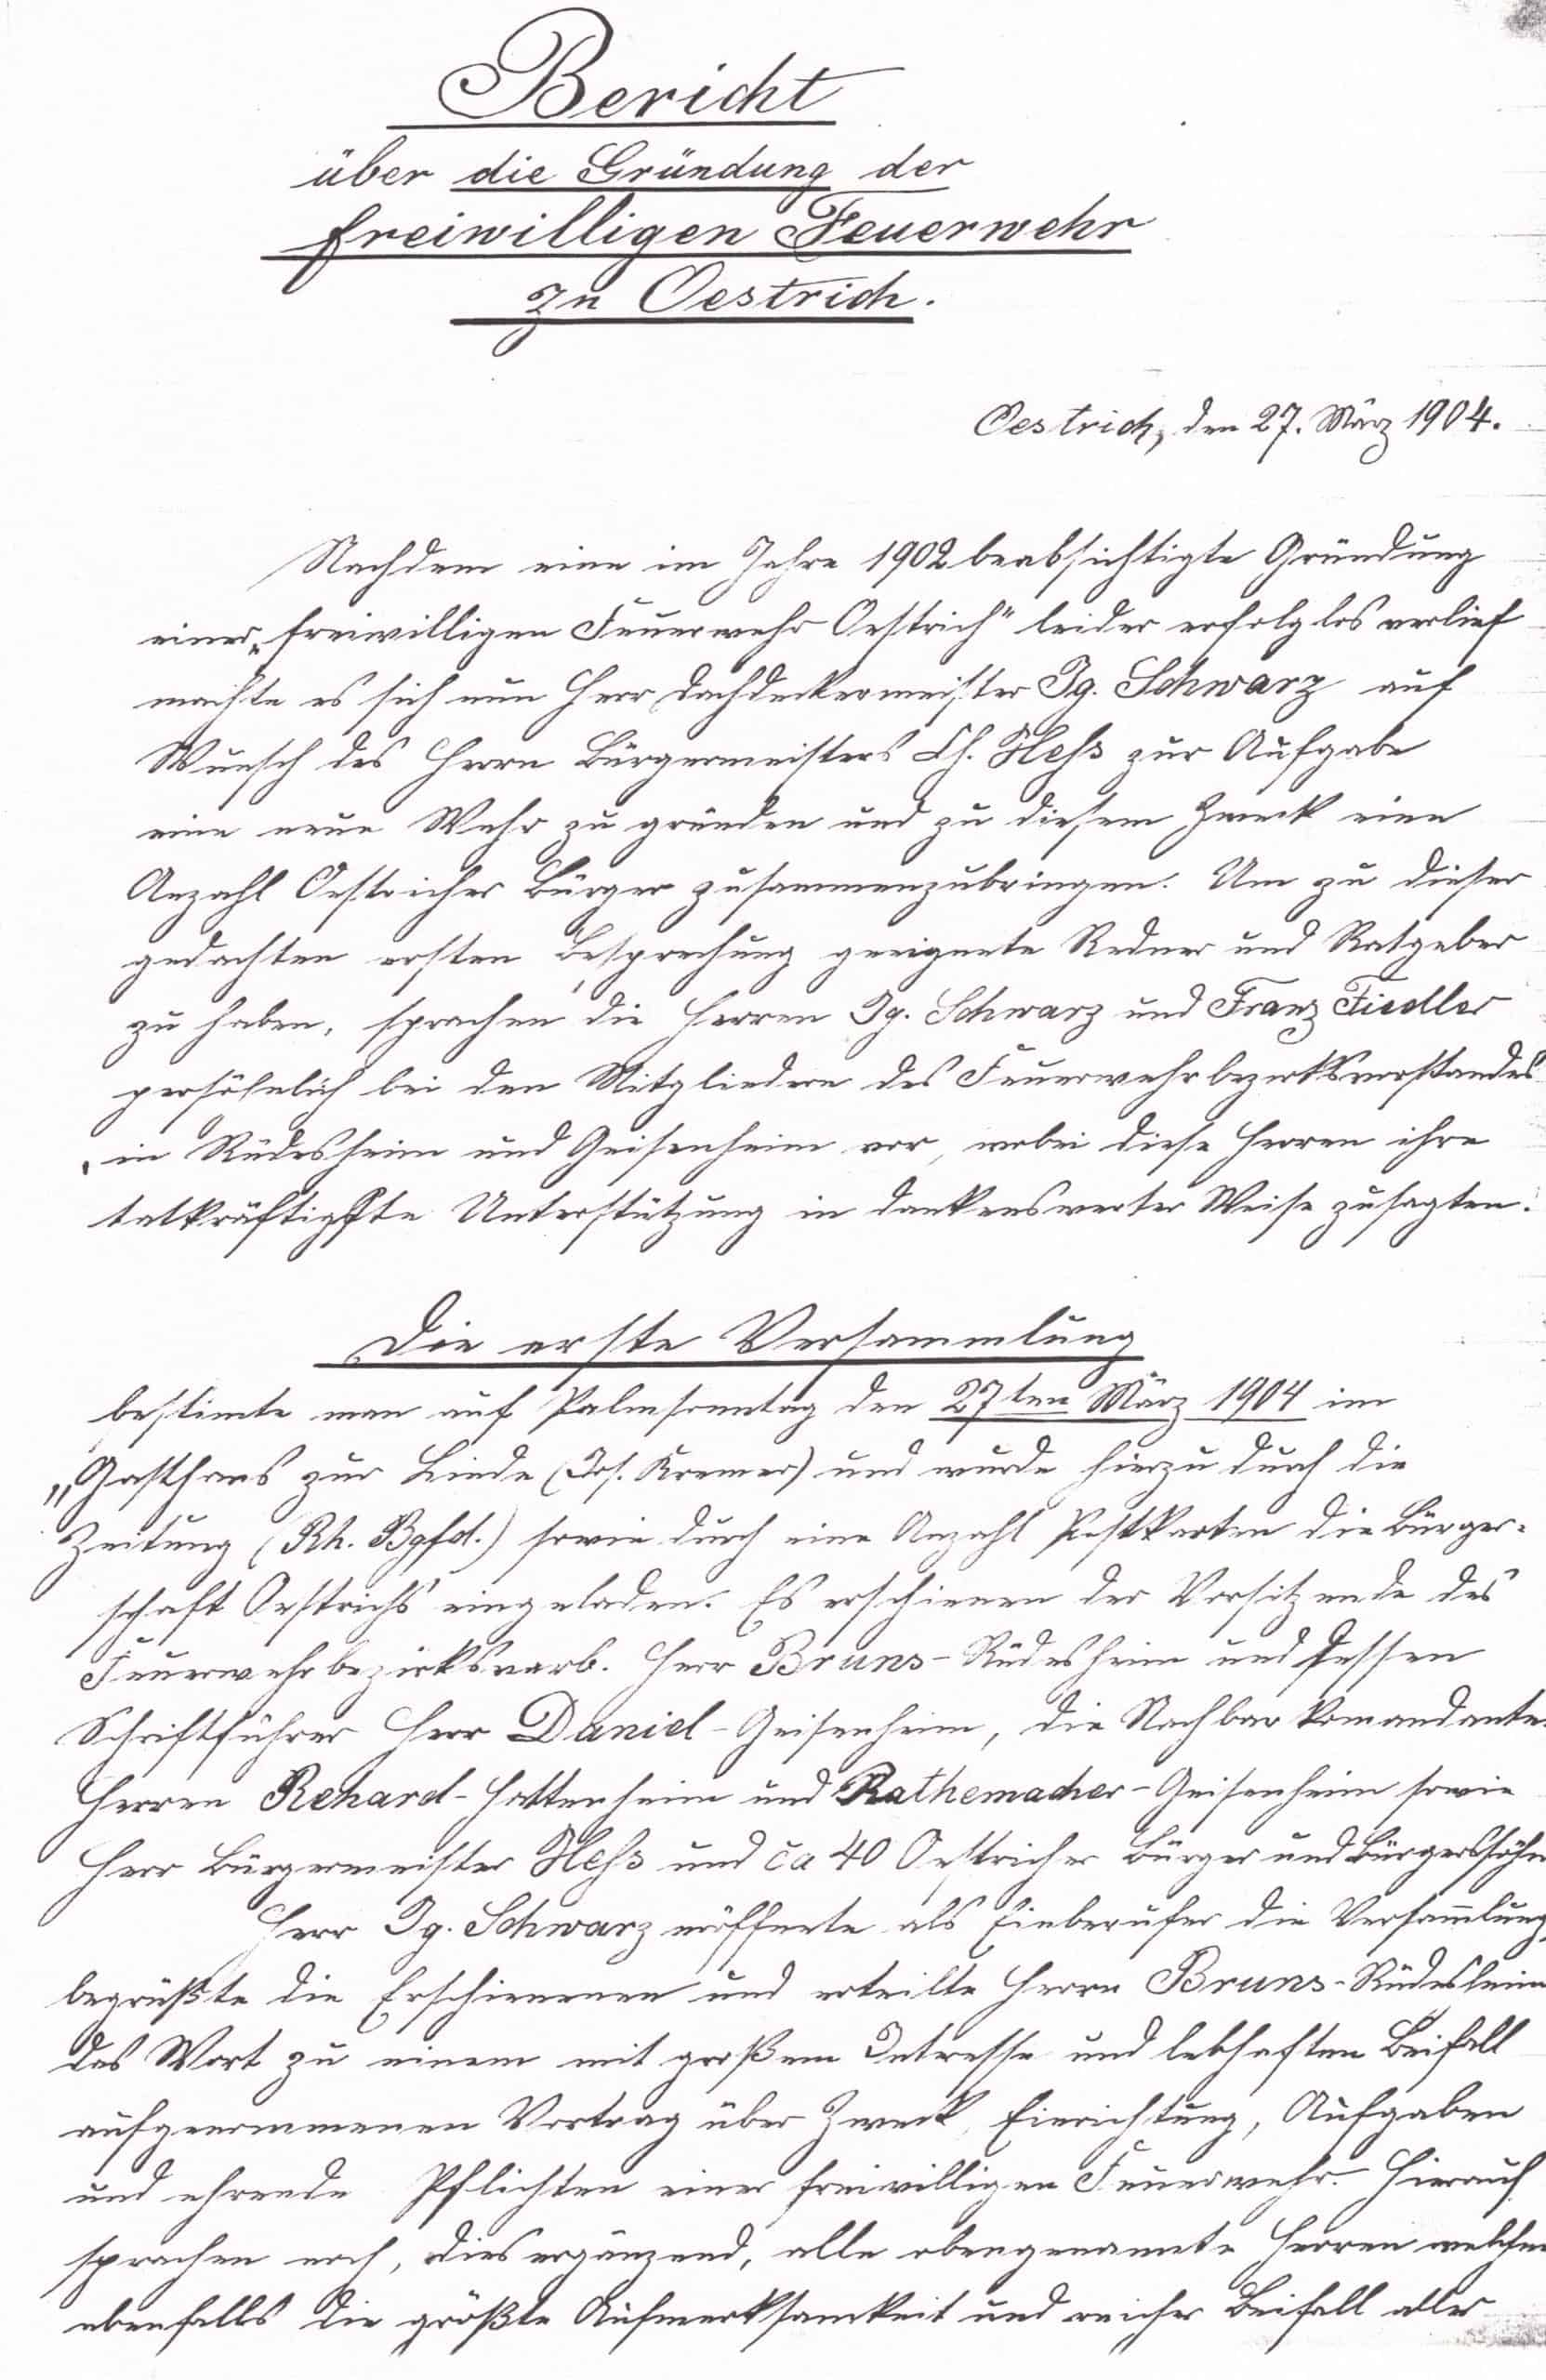 Bericht
über die Gründung der
freiwilligen Feuerwehr
zu Oestrich.
Oestrich, den 27. März 1904.
Nachdem eine im Jahre 1902 beabsichtigte Gründung
einer „freiwilligen Feuerwehr Oestrich" leider erfolglos verlief
machte es sich nun Herr Dachdeckermeister Jg. Schwarz auf
Wunsch des Herrn Bürgermeisters Hess zur Aufgabe
eine neue Wehr zu gründen und zu diesem Zweck eine
Anzahl Oestricher Bürger zusammenzubringen. Um zu dieser
gedachten ersten Besprechung geeignete Redner und Ratgeber
zu haben, sprachen die Herren Jg. Schwarz und Franz Fiedler
persöhnlich bei den Mitgliedern des Feuerwehrbezirksvorstandes
in Rüdesheim und Geisenheim vor, wobei diese Herren ihre
tatkräftigste Unterstützung in dankenswerter Weise zusagten.
Die erste Versammlung
bestimte man auf Palmsonntag den 27ten März 1904 im
„Gasthaus zur Linde (Jos. Kremer) und wurde hierzu durch die
Zeitung (Rh. Bgfd.) sowie durch eine Anzahl Postkarten die Bürger-
schaft Oestrichs eingeladen. Es erschienen der Vorsitzende des
Feuerwehrbezirksverb. Herr Bruns-Rüdesheim und dessen
Schriftführer Herr Daniel-Geisenheim, die Nachbarkomandanten
Herren Rehard-Hattenheim und Rathemacher-Geisenheim sowie
Herr Bürgermeister Hess und ca 40 Oestricher Bürger und Bürgerssöhne
Herr Jg. Schwarz eröffnete als Einberufer die Versammlung,
begrüßte die Erschienenen und erteilte Herrn Bruns-Rüdesheim
das Wort zu einem mit großem Intresse und lebhaften Beifall
aufgenommenen Vortrag über Zweck, Einrichtung, Aufgaben
und ehrende Pflichten einer freiwilligen Feuerwehr. Hierauf
sprachen noch, dies ergänzend, alle obengenannte Herren welchen
ebenfalls die größte Aufmerksamkeit und reicher Beifall aller